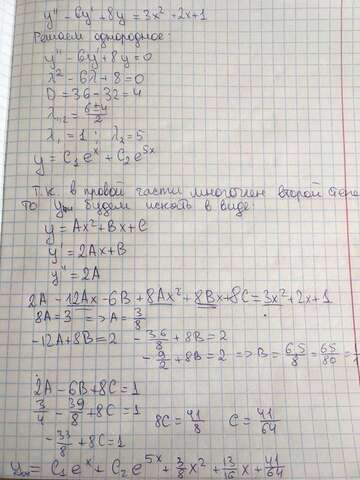 y'' - 6y' + 8y = 3x² + 2x + 1
Решаем однородное:
y'' - 6y' + 8y = 0
λ² - 6λ + 8 = 0
D = 36 - 32 = 4
λ₁,₂ = (6 ± 4)/2
λ₁ = 1 ; λ₂ = 5
y = C₁eˣ + C₂e⁵ˣ
Т.к. в правой части многочлен второй степе
то yчн будем искать в виде:
y = Ax² + Bx + C
y' = 2Ax + B
y'' = 2A
2A - 12Ax - 6B + 8Ax² + 8Bx + 8C = 3x² + 2x + 1
8A = 3 => A = 3/8
-12A + 8B = 2 - 36/8 + 8B = 2
- 9/2 + 8B = 2 => B = 6,5/8 = 65/80 = 1
2A - 6B + 8C = 1
3/4 - 39/8 + 8C = 1 8C = 41/8 C = 41/64
- 33/8 + 8C = 1
yон = C₁eˣ + C₂e⁵ˣ + 3/8 x² + 13/16 x + 41/64